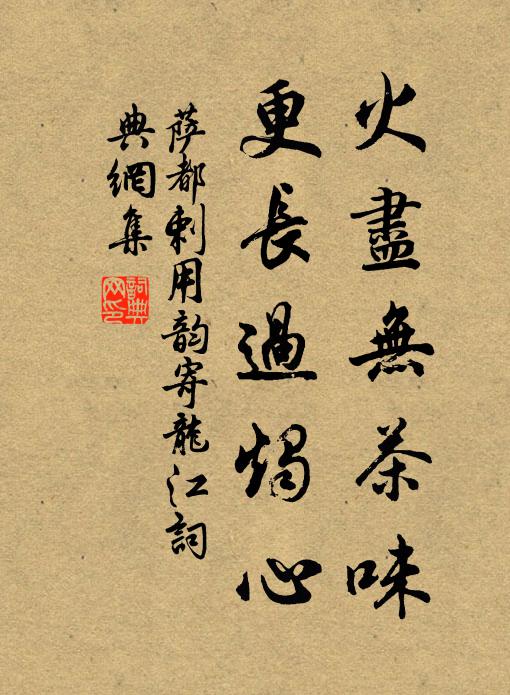 火盡無茶味
更長過燭心
薩都剌用韵寄龍江詞
典網集
詞典
网印